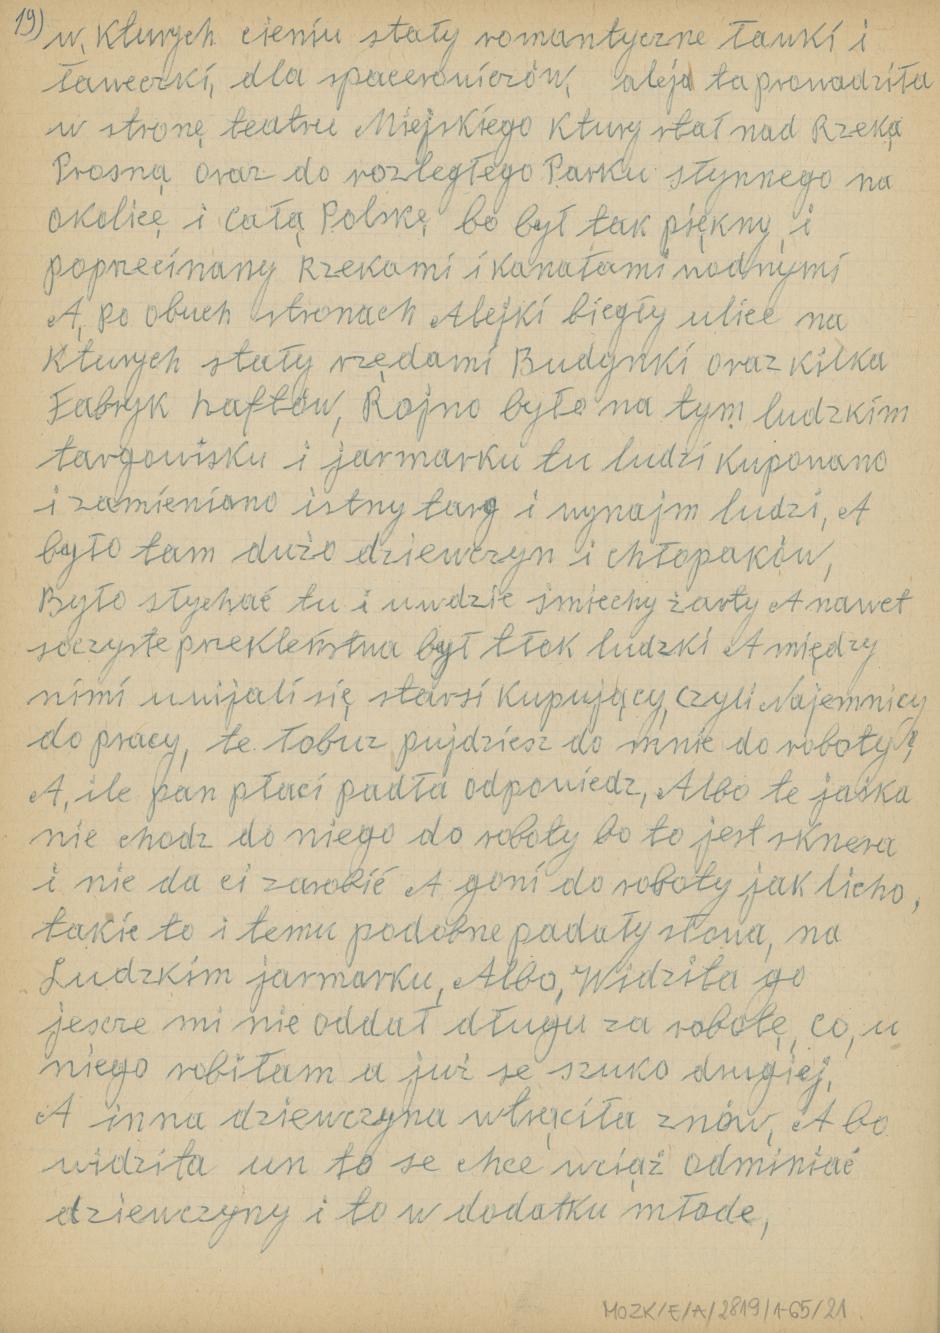 19)
w, kturych cieniu stały romantyczne ławki i
ławeczki, dla spacerowiczów, aleja ta prowadziła
w stronę teatru Miejskiego ktury stał nad Rzeką
Prosną oraz do rozległego Parku słynnego na
okolicę i Całą Polskę, bo był tak piękny, i
poprzecinany Rzekami i kanałami wodnymi
A, po obuch stronach Alejki biegły ulice na
kturych stały rzędami Budynki oraz kilka
Fabryk haftów, Rojno było na tym ludzkim
targowisku i jarmarku tu ludzi kupowano
i zamieniano istny targ i wynajm ludzi, A
było tam dużo dziewczyn i chłopaków,
Było słychać tu i uwdzie śmiechy żarty A nawet
soczyste przekleństwa był tłok ludzki A między
nimi uwijali się starsi kupujący, czyli Najemnicy
do pracy, te łobuz pujdziesz do mnie do roboty?
A, ile pan płaci padła odpowiedz, Albo te jaśka
nie chodz do niego do roboty bo to jest sknera
i nie da ci zarobić A goni do roboty jak licho,
takie to i temu podobne padały słowa, na
Ludzkim jarmarku, Albo, Widziła go
jescze mi nie oddał długu za robotę, co, u
niego robiłam a już se szuko drugiej,
A inna dziewczyna wtrąciła znów, A bo
widziła un to se chce wciąż odminiać
dziewczyny i to w dodatku młode,
MOZK/E/A/2819/1-65/21